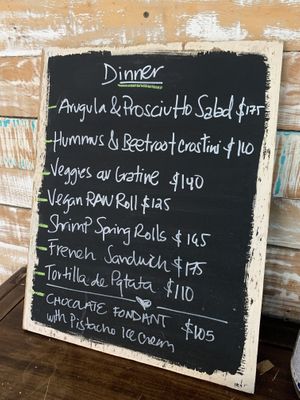 Dinner
Arugula & Prosciutto Salad $175
Hummus & Beetroot crostini $110
Veggies au Gratine $140
Vegan RAW Roll $125
Shrimp Spring Rolls $145
French Sandwich $175
Tortilla de Patata $110
CHOCOLATE FONDANT $105
with Pistacho Ice Cream